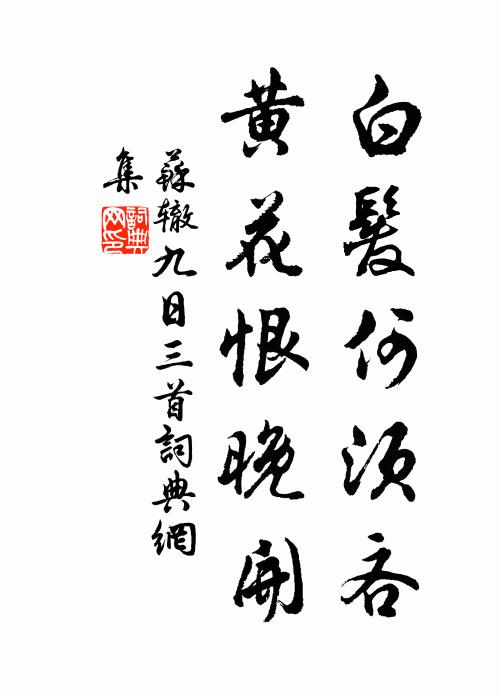 白髮何須吝
黃花恨晚開
蘇轍九日三首詞典網
集
詞典
网印